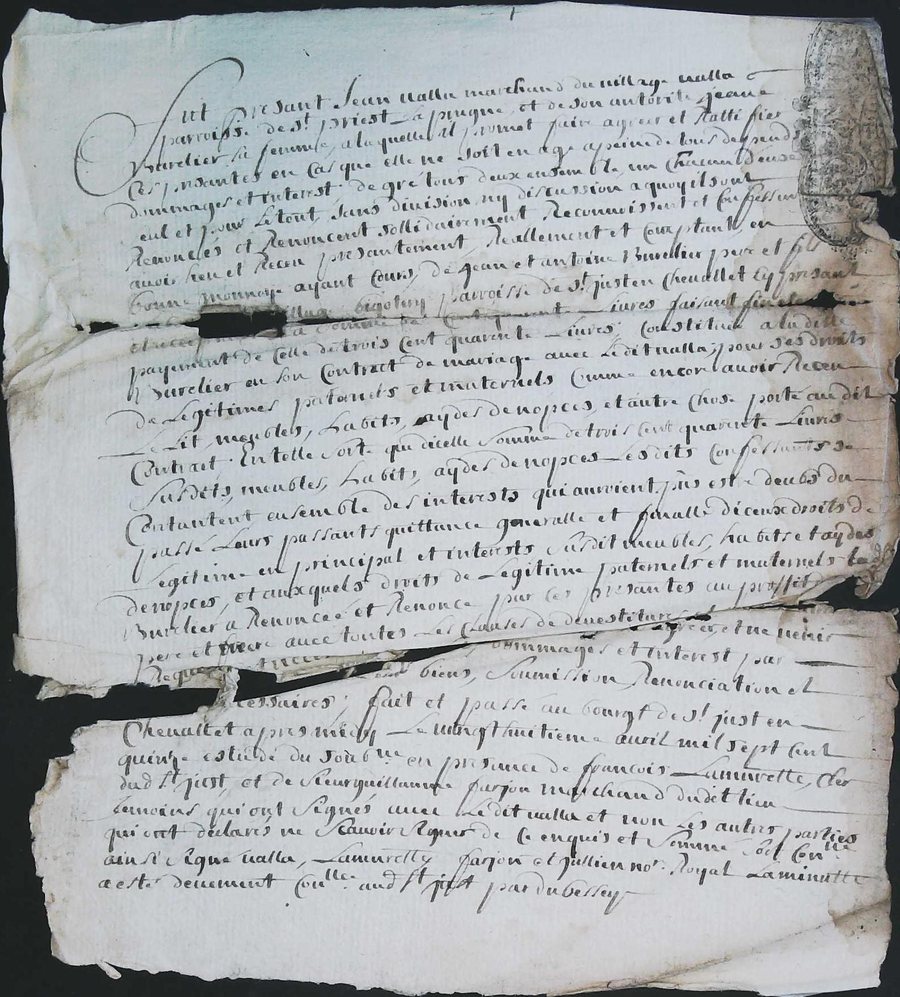 Fut présant Jean valla marchand du village valla
parroisse de st priest Laprugne, et de son autorité jeane
Burelier sa femme, a laquelle il promet faire agreer et Ratiffier
Ces présantes en Cas que elle ne soit en age a peine de tous depends
dommages et interest, de gré tous deux ensemble, un chacun deux
seul et pour Le tout, sans division, ny discussion a quoy ils ont
Renoncés et Renoncent sollidairement, Reconnoissent et Confessent
avoir heu et Receu présantement, Reallement et Comptant, en
bonne monnoye ayant Cours, de Jean et antoine Burelier pere et fils
parroisse de st just en Chevallet Cy présant
Livres faisant
payement de Celle de trois Cent quarente Livres, Constitué a la ditte
Burelier en son Contract de mariage avec Ledit valla, pour ses droits
de Legitimes paternels et maternels Comme encor avoir Receu
Le Lit, meubles, habits, aydes de nopces, et autre Chose porté audit
Contract En telle sorte que dicelle somme de trois Cent quarente Livres
susdits, meubles, habits, aydes de nopces Lesdits Confessants se
Contantent ensemble des interests qui auroient pûs estre deubs du
passé Leurs passants quittance generalle et finalle diceux droits de
Legitime en principal et interests susdit meubles, habits et aydes
de nopces, et auxquels droits de Legitime paternels et maternels la
Burelier a Renoncée et Renonce par ces presantes au proffit
pere et frere avec toutes Les Clauses de devestitures
dommages et interest par
biens, soumission, Renonciation et
cessaires; fait et passé au bourgt de st just en
Chevallet apres midy Le vingt huitieme avril mil sept Cent
quinze estude du soub.né en présance de françois Lamurette, Cler
dud st just, et de sieur guillaume farjon marchand dudit lieu
temoins qui ont signés avec Ledit valla et non Les autres parties
qui ont declarés ne scavoir signer de Ce enquis et sommé
ainsi signé valla, Lamurette farjon et jullien no.re Royal La minutte
a esté deuement Con.lle aud st just par dubessey